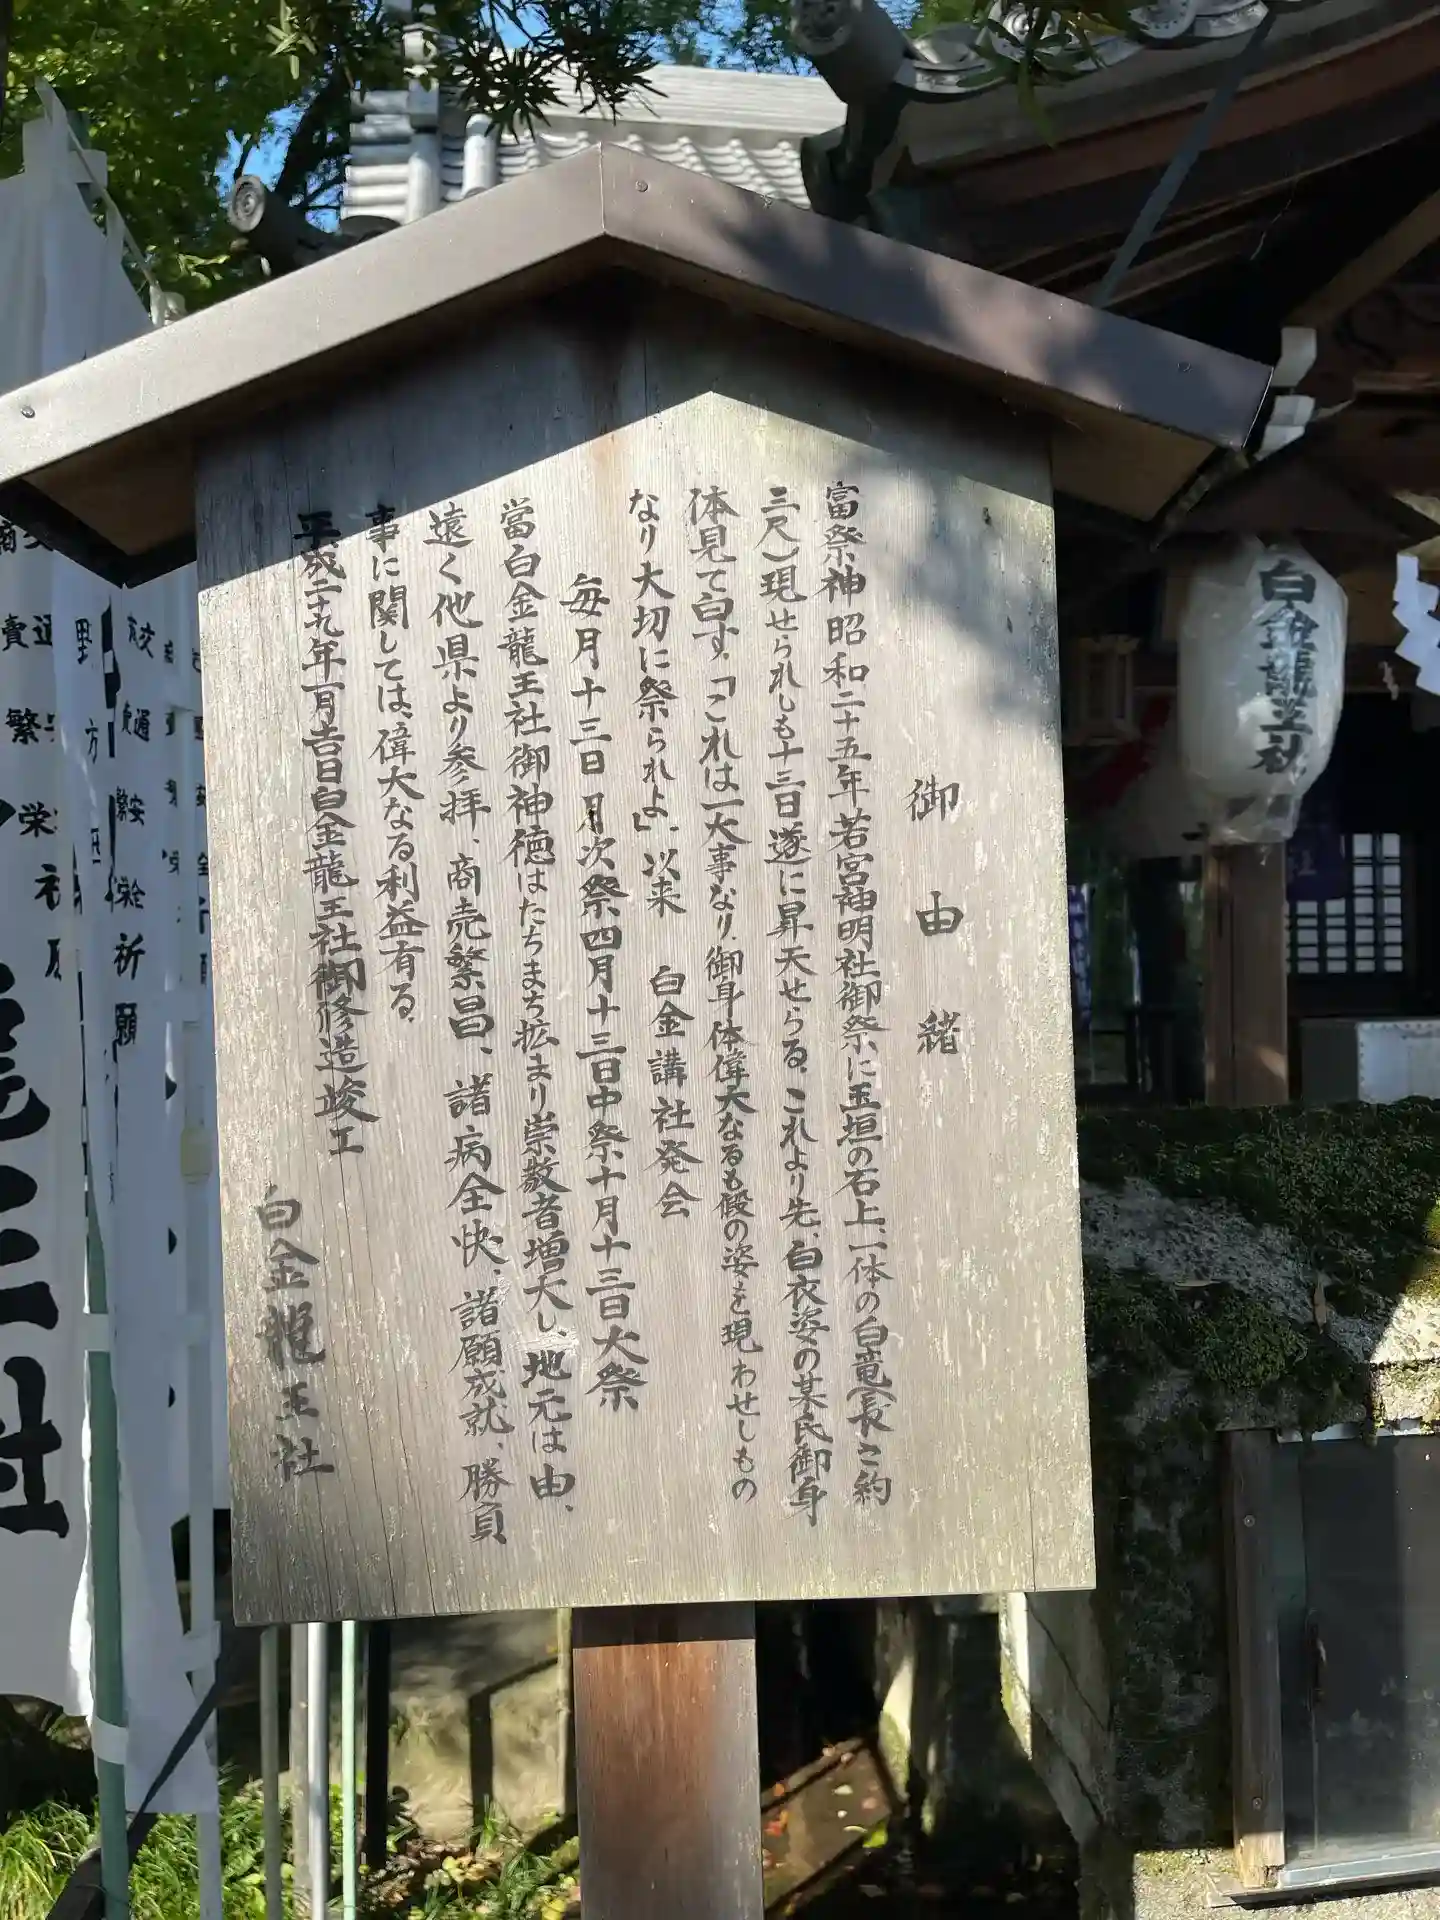 御由緒
富祭神昭和二十五年若宮神明社御祭に玉垣の石上、一体の白竜(長さ約
三尺)現せられしも十三日遂に昇天せらる。これより先、白衣姿の某氏御身
体見て白す、「これは一大事なり、御身体偉大なるも假の姿を現わせしもの
なり大切に祭られよ」、以来 白金講社発会
毎月十三日月次祭四月十三日中祭十月十三日大祭
當白金龍王社御神徳はたちまち拡まり崇敬者増大し、地元は由、
遠く他県より参拝、商売繁昌、諸病全快、諸願成就、勝負
事に関しては、偉大なる利益有る。
平成二十九年一月吉日白金龍王社御修造竣工
白金龍王社
白金龍王社